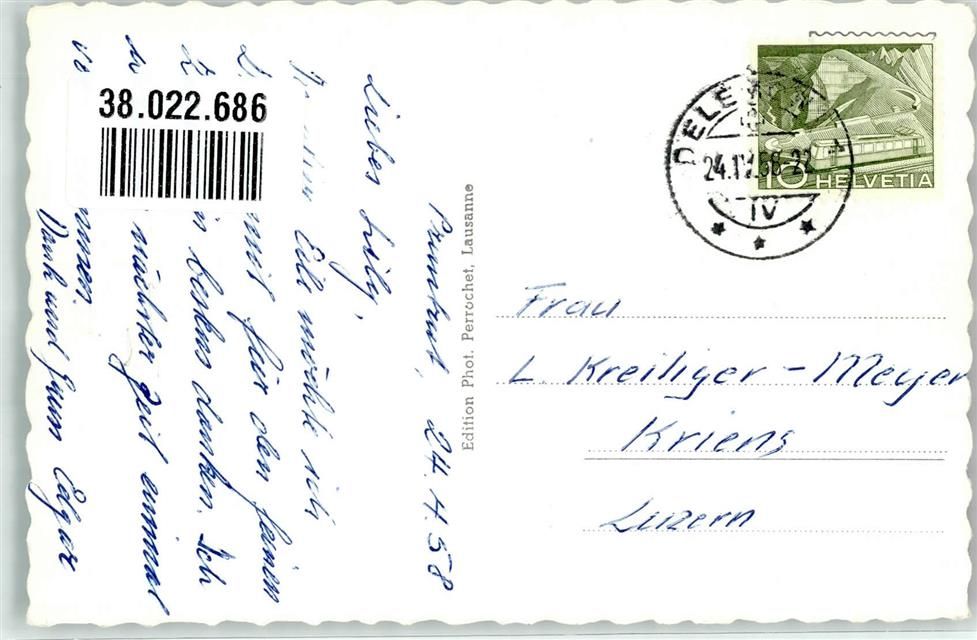 38.022.686
Pruntrut, 24.4.58
Liebes Lily,
Eile möchte ich
mit für den feinen
bestens danken. Ich
nächster Zeit einmal
Dank und Gruss Edgar
Edition Phot. Perrochet, Lausanne
24.IV.58-22
IV
10 HELVETIA
Frau
L. Kreiliger-Meyer
Kriens
Luzern